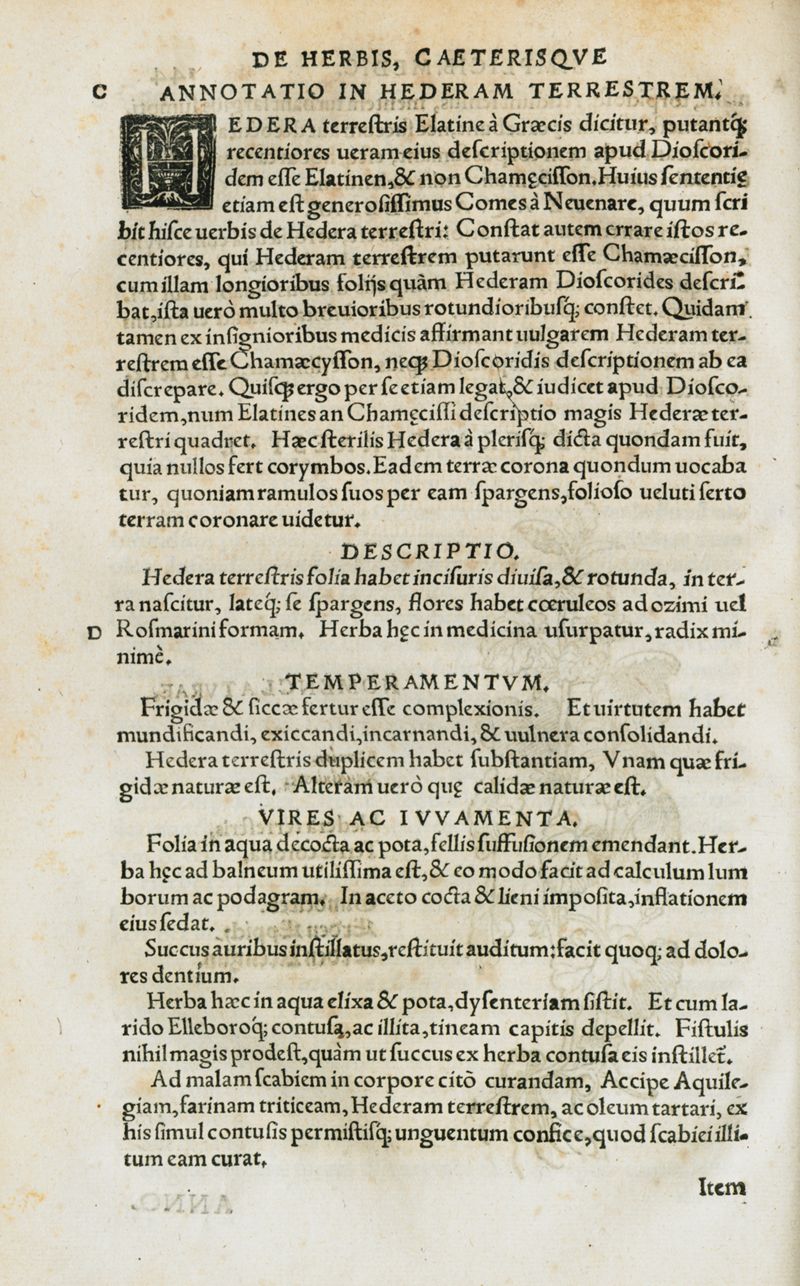 DE HERBIS, CAETERISQVE
C ANNOTATIO IN HEDERAM TERRESTREM.
HEDERA terreſtris Elatine à Græcis dicitur, putantq;
recentiores ueram eius deſcriptionem apud Dioſcori-
dem eſſe Elatinen,& non Chamęciſſon.Huius ſententię
etiam eſt generoſiſſimus Comes à Neuenare, quum ſcri
bit hiſce uerbis de Hedera terreſtri: Conſtat autem errare iſtos re-
centiores, qui Hederam terreſtrem putarunt eſſe Chamæciſſon,
cum illam longioribus folijs quàm Hederam Dioſcorides deſcri-
bat,iſta uerò multo breuioribus rotundioribuſq; conſtet. Quidam
tamen ex inſignioribus medicis affirmant uulgarem Hederam ter-
reſtrem eſſe Chamæcyſſon, neq; Dioſcoridis deſcriptionem ab ea
diſcrepare. Quiſq; ergo per ſe etiam legat,& iudicet apud Dioſco-
ridem,num Elatines an Chamęciſſi deſcriptio magis Hederæ ter-
reſtri quadret. Hæc ſterilis Hedera à pleriſq; dicta quondam fuit,
quia nullos fert corymbos.Eadem terræ corona quondum uocaba
tur, quoniam ramulos ſuos per eam ſpargens,folioſo ueluti ſerto
terram coronare uidetur.
DESCRIPTIO.
Hedera terreſtris folia habet inciſuris diuiſa,& rotunda, in ter-
ra naſcitur, lateq; ſe ſpargens, flores habet cœruleos ad ozimi uel
D Roſmarini formam. Herba hęc in medicina uſurpatur,radix mi-
nimè.
TEMPERAMENTVM.
Frigidæ & ſiccæ fertur eſſe complexionis. Et uirtutem habet
mundificandi, exiccandi,incarnandi, & uulnera conſolidandi.
Hedera terreſtris duplicem habet ſubſtantiam, Vnam quæ fri-
gidæ naturæ eſt. Alteram uerò quę calidæ naturæ eſt.
VIRES AC IVVAMENTA.
Folia in aqua decocta ac pota,fellis ſuffuſionem emendant.Her-
ba hęc ad balneum utiliſſima eſt,& eo modo facit ad calculum lum
borum ac podagram. In aceto cocta & lieni impoſita,inflationem
eius ſedat.
Succus auribus inſtillatus,reſtituit auditum:facit quoq; ad dolo-
res dentium.
Herba hæc in aqua elixa & pota,dyſenteriam ſiſtit. Et cum la-
rido Elleboroq; contuſa,ac illita,tineam capitis depellit. Fiſtulis
nihil magis prodeſt,quàm ut ſuccus ex herba contuſa eis inſtillet.
Ad malam ſcabiem in corpore citò curandam, Accipe Aquile-
giam,farinam triticeam,Hederam terreſtrem, ac oleum tartari, ex
his ſimul contuſis permiſtiſq; unguentum confice,quod ſcabiei illi-
tum eam curat.
Item